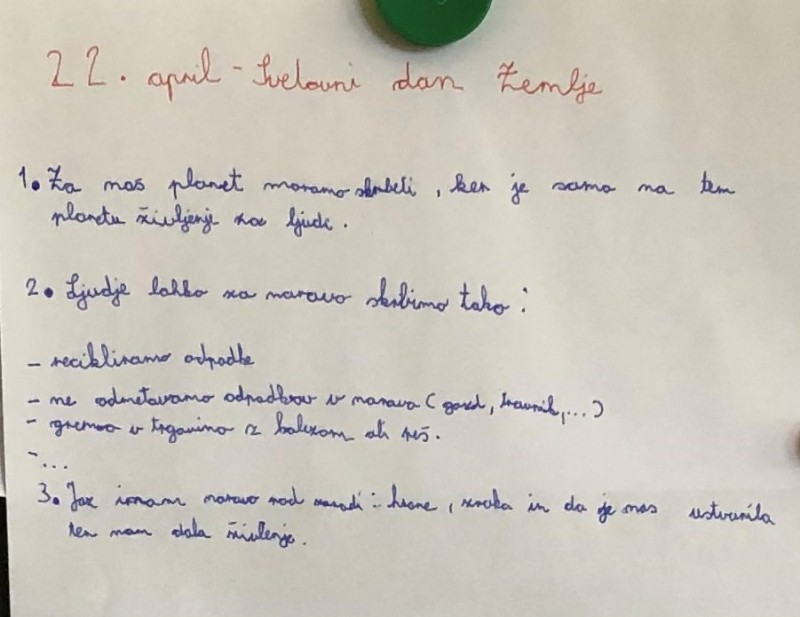 22. april - Svetovni dan Zemlje
1. Za naš planet moramo skrbeti, ker je samo na tem
planetu življenje za ljudi.
2. Ljudje lahko za naravo skrbimo tako:
- recikliramo odpadke
- ne odmetavamo odpadkov v naravo (gozd, travnik,...)
- gremo v trgovino z kolesom ali peš.
-...
3. Jaz imam naravo rad zaradi: hrane, zraka in da je nas ustvarila
ter nam dala živlenje.